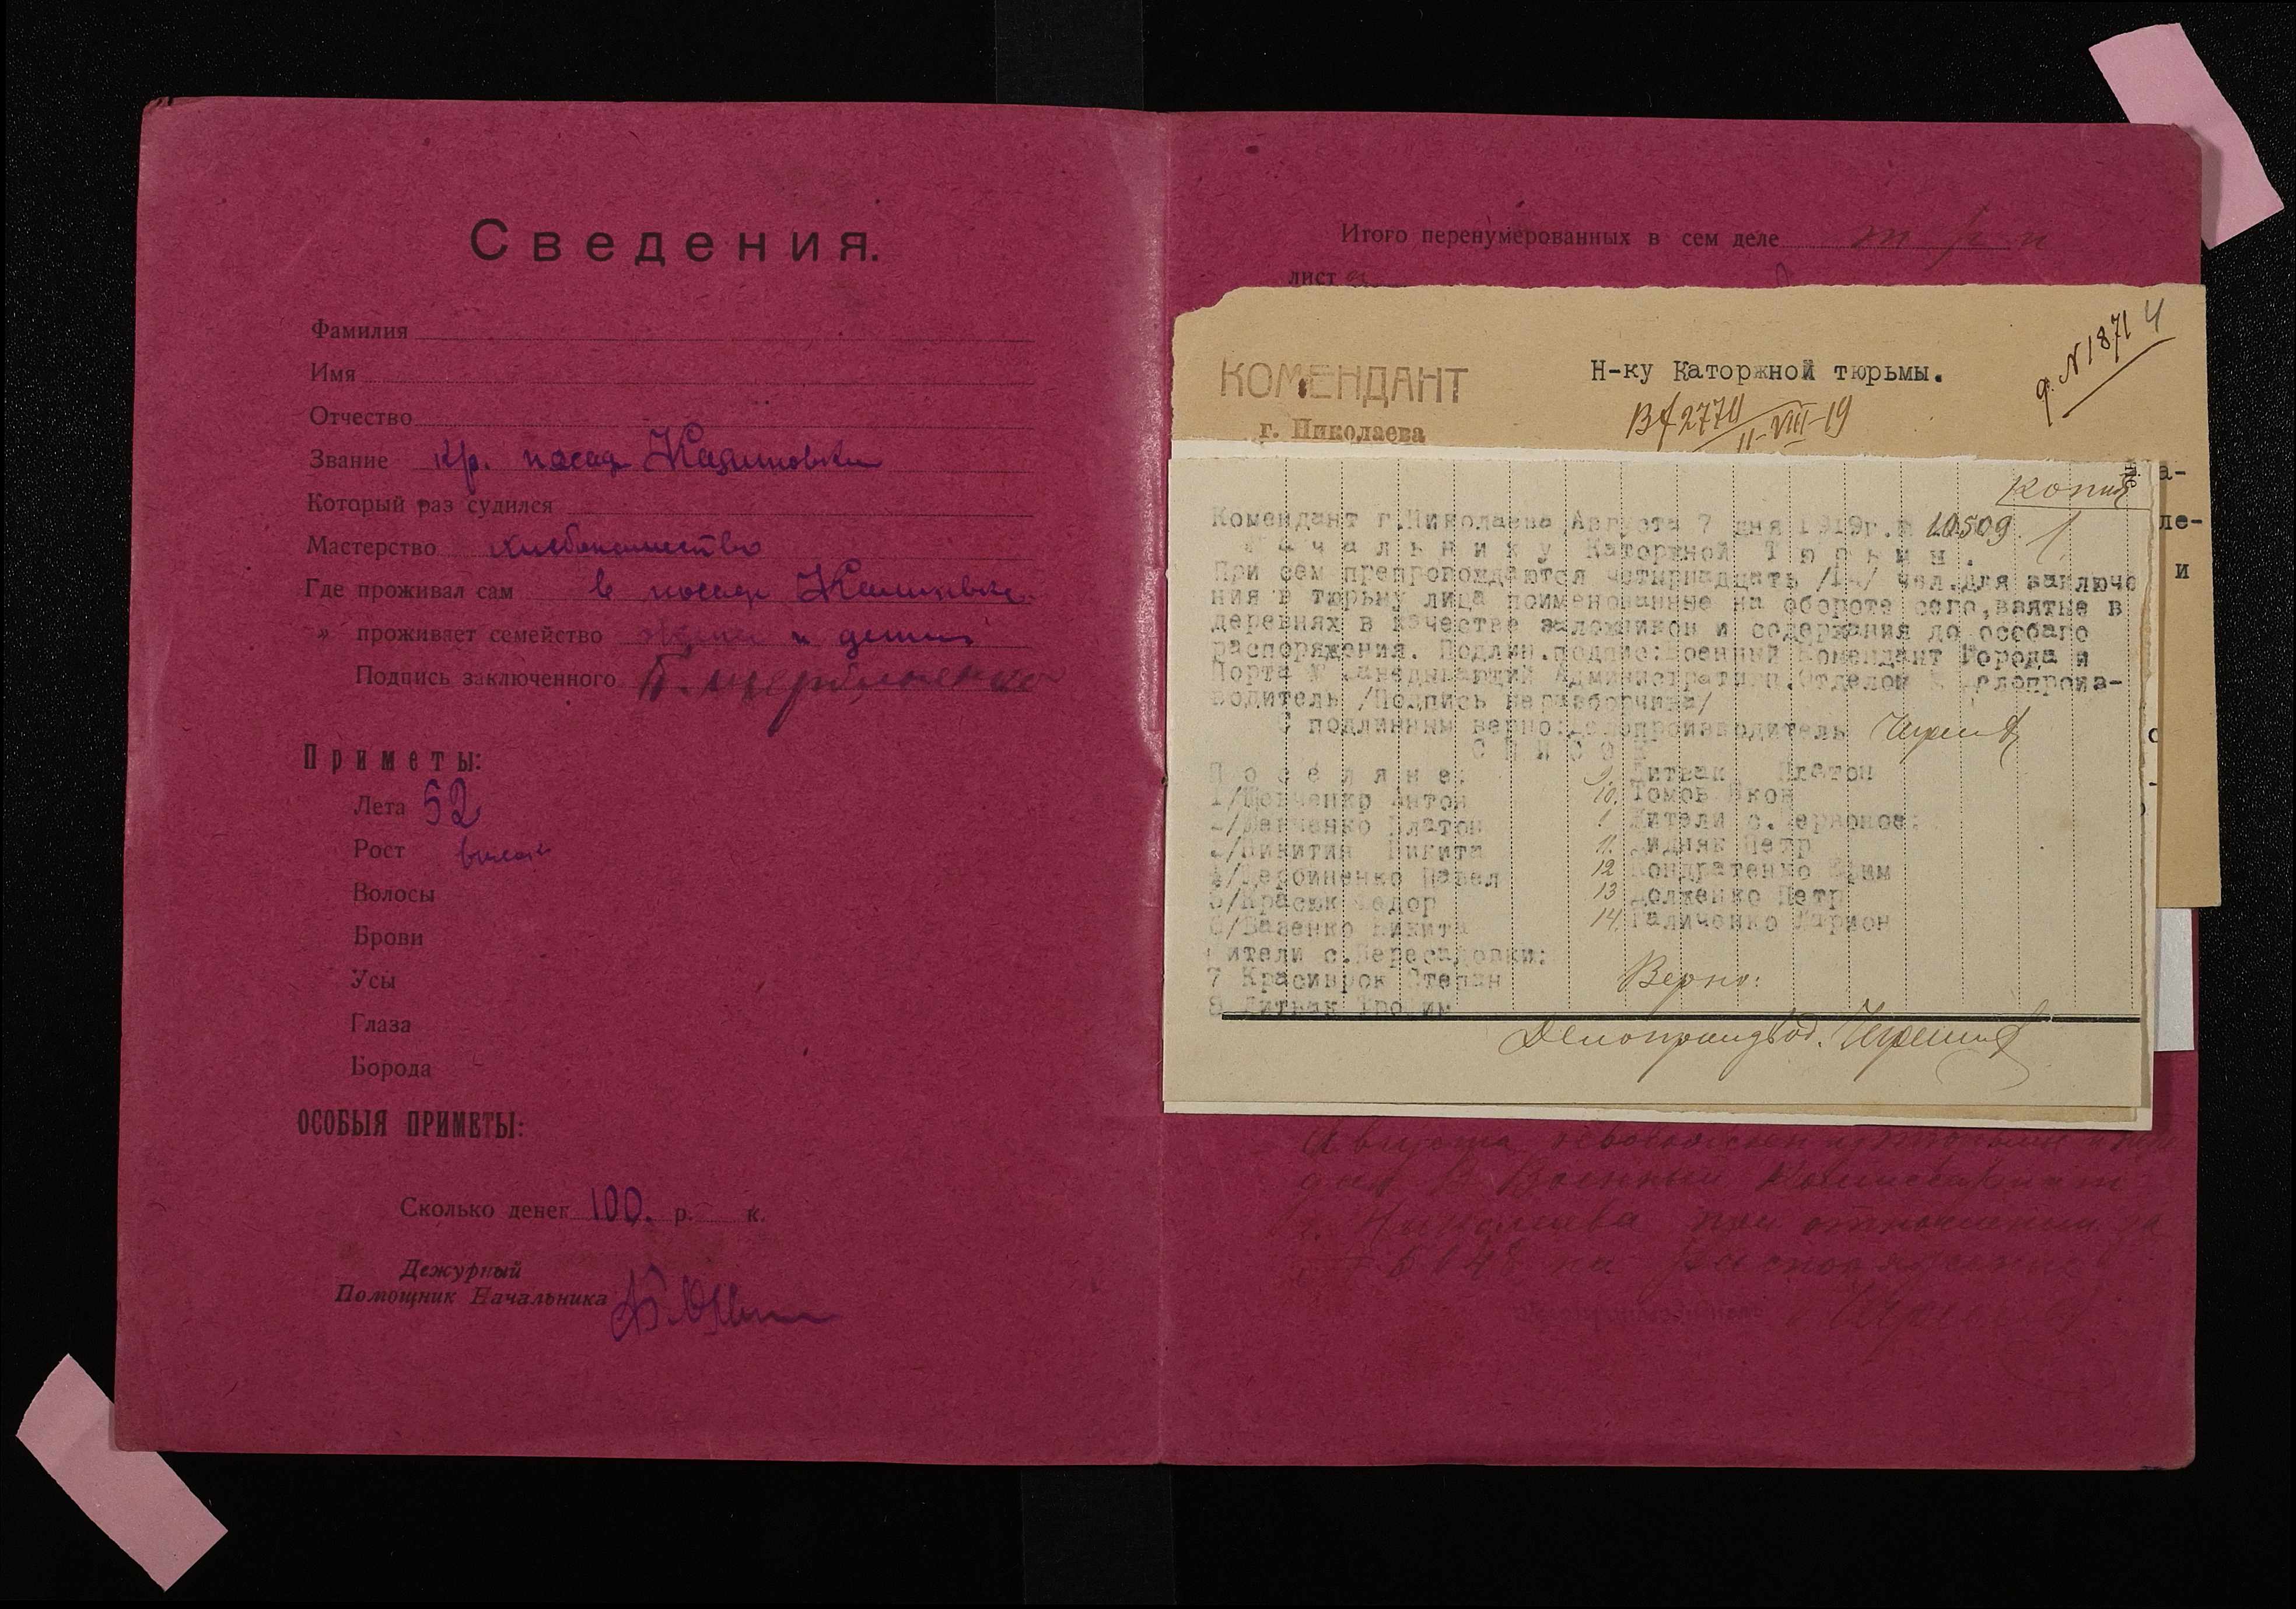 Сведения.
Фамилия
Имя
Отчество
Звание кр. посад Калиновки
Который раз судился
Мастерство хлебопашество
Где проживал сам в посаде Калиновке
» проживает семейство жена и дети
Подпись заключенного П. Щербиненко
Приметы:
Лета 52
Рост высок
Волосы
Брови
Усы
Глаза
Борода
ОСОБЫЯ ПРИМЕТЫ:
Сколько денег 100. р. к.
Дежурный
Помощник Начальника
Итого перенумерованных в сем деле три
лист а
КОМЕНДАНТ
г. Николаева
Н-ку Каторжной тюрьмы.
Вх 2770
11-VIII-19
д. N 1871 4
а-
ле-
и
Копия
Комендант г.Николаева Августа 7 дня 1919г. № 10509 1
Начальнику Каторжной Тюрьмы.
При сем препровождаются четырнадцать /14/ чел.для заключе
ния в тюрьму лица поименованные на обороте сего,взятые в
деревнях в качестве заложников и содержания до особаго
распоряжения. Подлин.подпис:Военный Комендант Города и
Порта Заведывающий Административн.Отделом Делопроиз-
водитель /Подпись неразборчива/
С подлинным верно:Делопроизводитель
СПИСОК
Поселяне:
1/Шевченко Антон
2/Шевченко Платон
3/Никитин Никита
4/Щербиненко Павел
5/Красюк Федор
6/Вазенко Никита
Жители с.Пересадовки:
7 Красиврок Степан
8 Литвак Трофим
9. Литвак Платон
10. Томов Яков
Жители с.
11. Дидняк Петр
12 Кондратенко Ефим
13 Долженко Петр
14. Галиченко Ларион
Верно:
Делопроизвод.
Августа освобожден из тюрьмы и
дан в Военный Комиссариат
г. Николаева при отношении за
№ 5648 на распоряжение